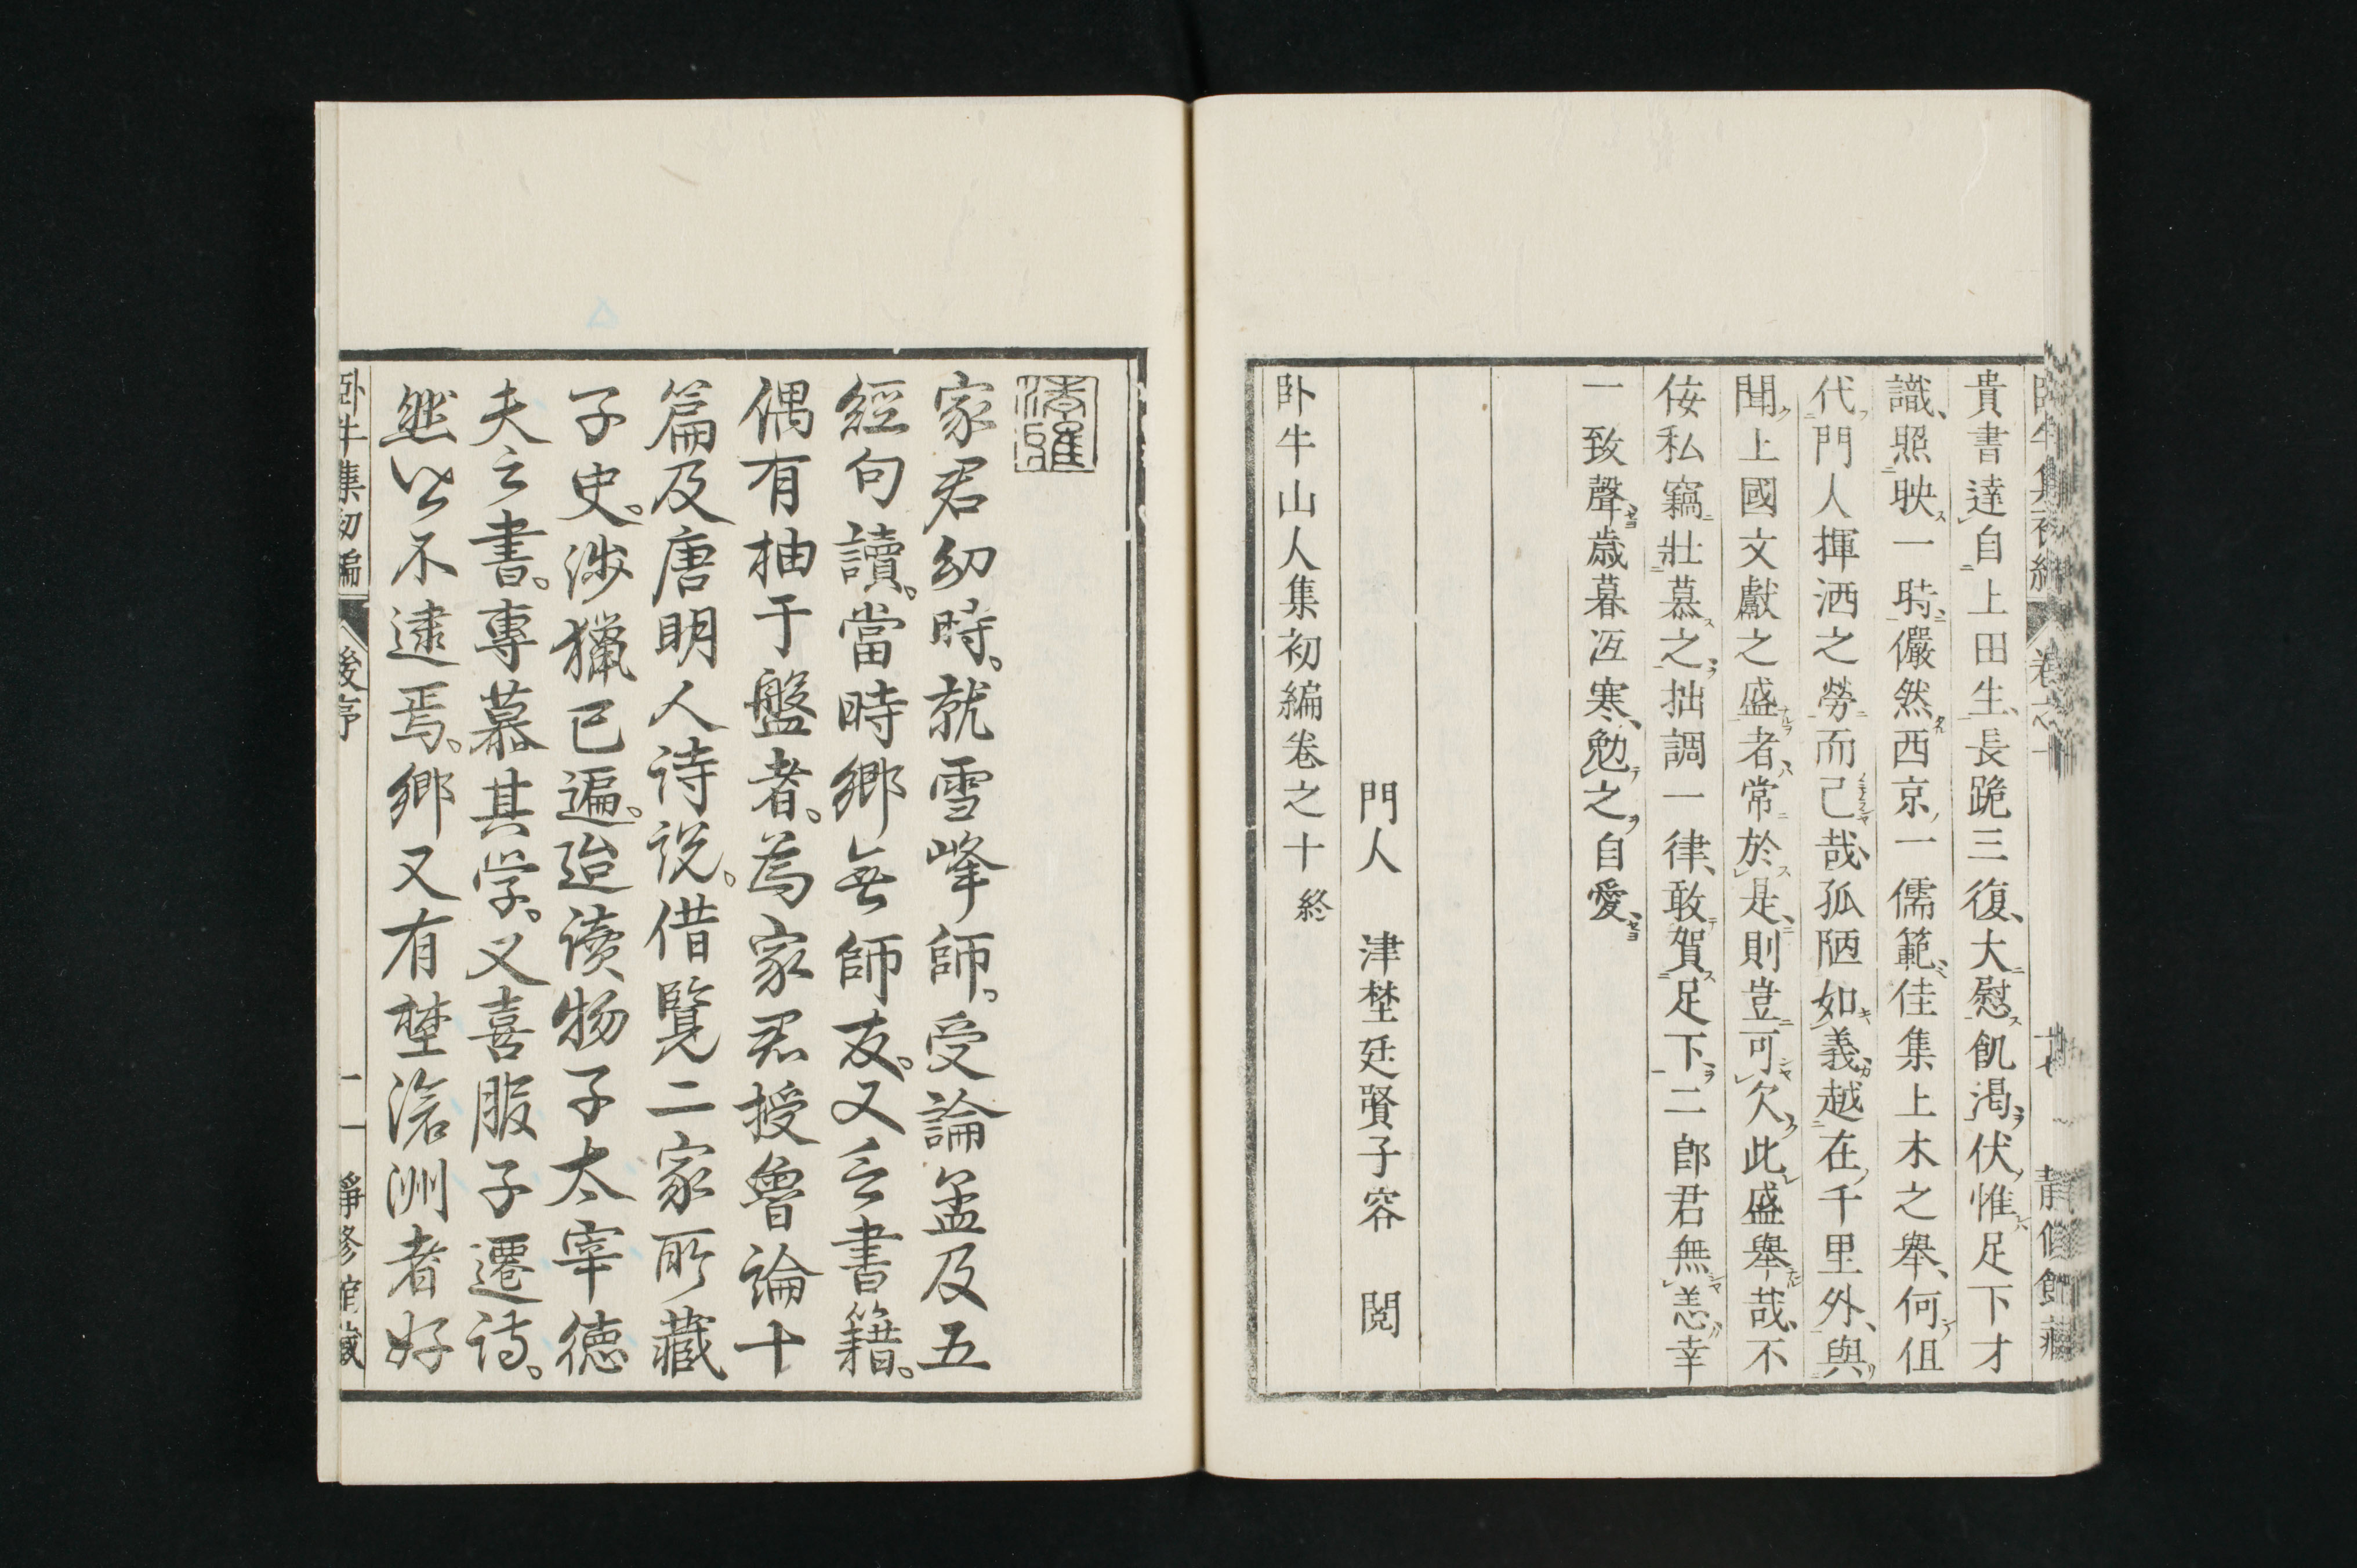 貴書達自上田生、長跪三復、大慰飢渇、伏惟足下才
識、照映一時、儼然西京一儒範、佳集上木之舉、何但
代門人揮洒之勞而已哉、孤陋如義越在千里外、與
聞上國文獻之盛者、常於是、則豈可欠此盛舉哉、不
佞私竊壯慕之、拙調一律、敢賀足下、二郎君無恙、幸
一致聲、歳暮冱寒、勉之、自愛、
門人　津埜廷賢子容　閲
卧牛山人集初編卷之十終
家君幼時。就雪峰師。受論孟及五
經句讀。當時郷無師友。又乏書籍。
偶有抽于盤者。為家君授魯論十
篇及唐明人诗説。借覽二家所藏
子史。渉獵已遍。迨读物子太宰徳
夫之書。專慕其学。又喜服子遷詩。
然以不逮焉。郷又有埜滄洲者好
卧牛集初編　後序　一　静修館蔵